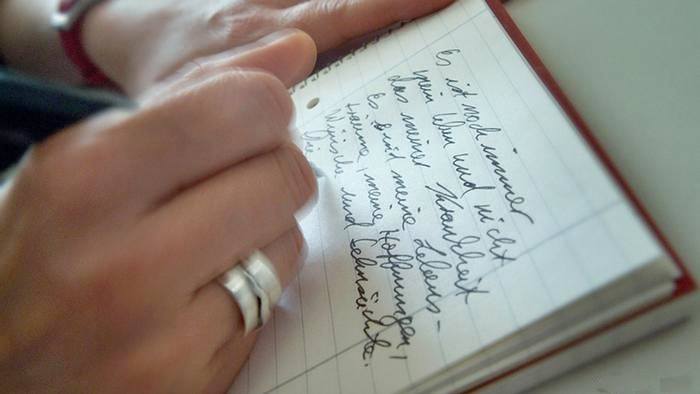 Es ist noch immer
mein Leben und nicht
das meiner Krankheit
Es sind meine Lebens-
träume, meine Hoffnungen,
Wünsche und Sehnsüchte.
Die